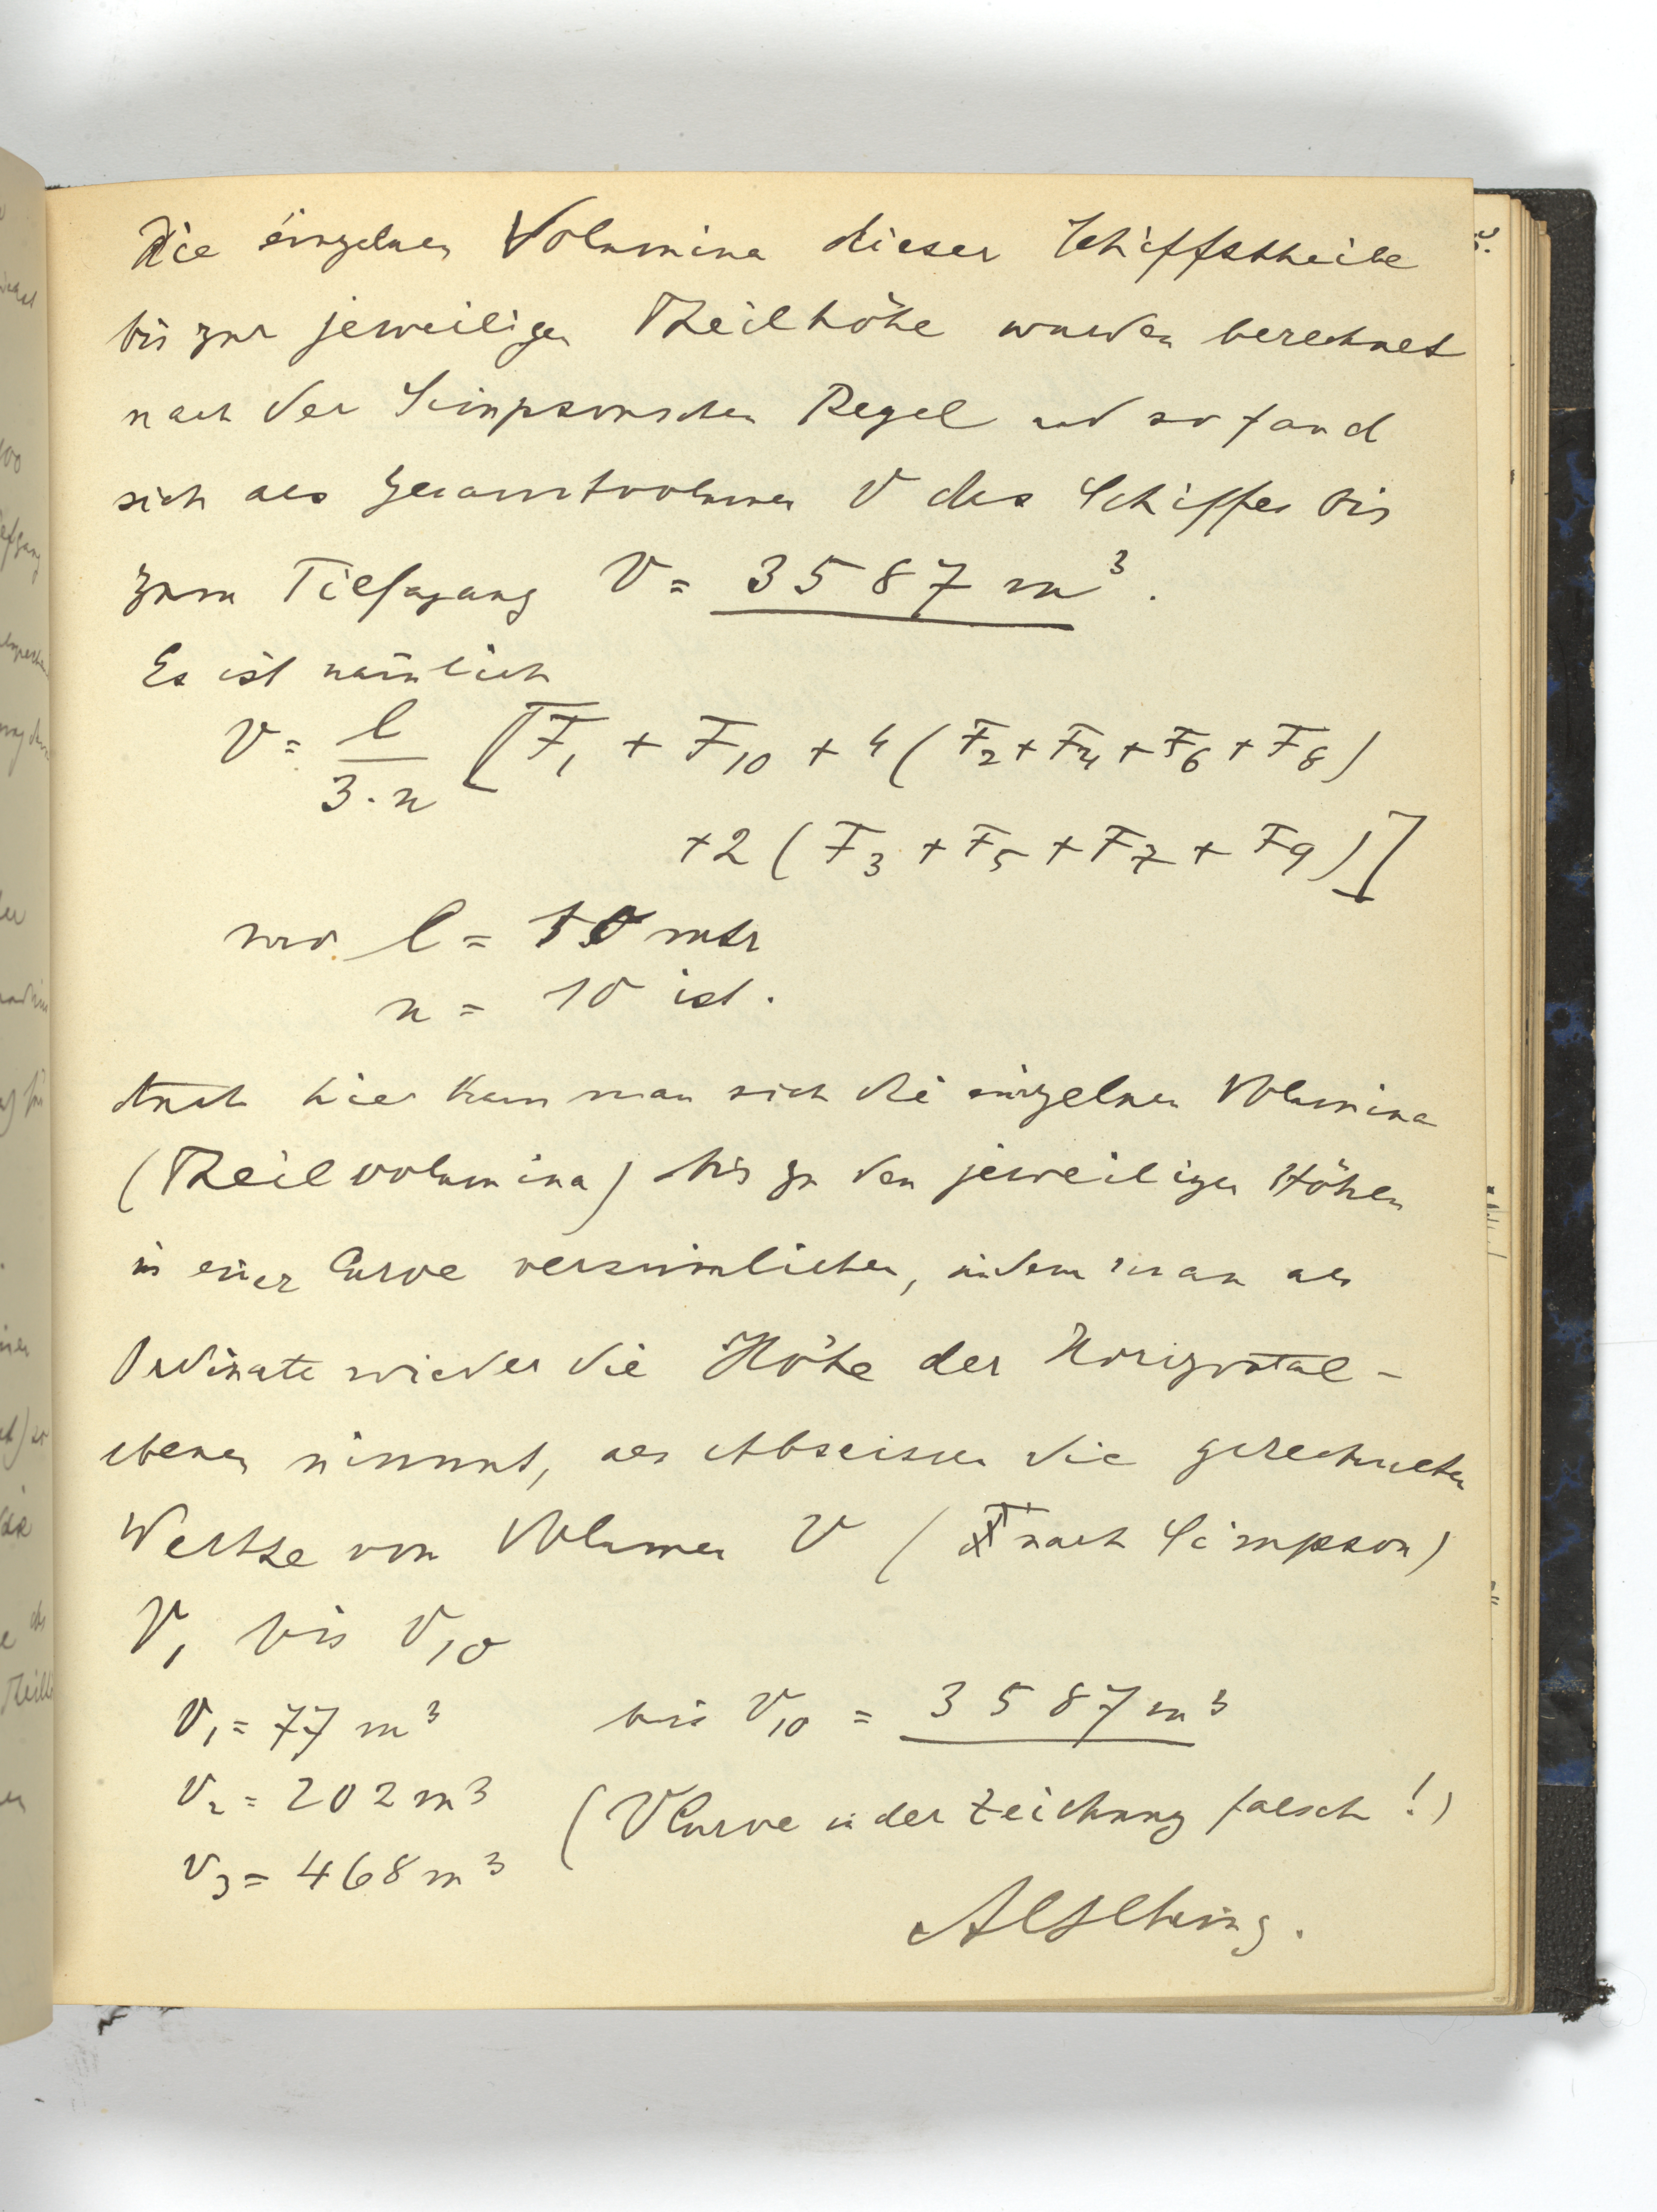 Die einzelnen Volumina dieser Schiffstheile
bis zur jeweiligen Theilhöhe wurden berechnet
nach der Simpsonschen Regel und so fand
sich als Gesamtvolumen V des Schiffes bis
zum Tiefgang V = 3587 m³.
Es ist nämlich
V = l / 3·n [F₁ + F₁₀ + 4 (F₂ + F₄ + F₆ + F₈)
+ 2 (F₃ + F₅ + F₇ + F₉)]
wo l = 10 mtr
n = 10 ist.
Auch hier kann man sich die einzelnen Volumina
(Theilvolumina) bis zu den jeweiligen Höhen
in einer Curve versinnlichen, indem man als
Ordinate wieder die Höhe der Horizontal-
ebenen nimmt, als Abscissen die gerechneten
Werthe von Volumen V ( nach Simpson)
V₁ bis V₁₀
V₁ = 77 m³ bis V₁₀ = 3587 m³
V₂ = 202 m³ (V Curve in der Zeichnung falsch!)
V₃ = 468 m³